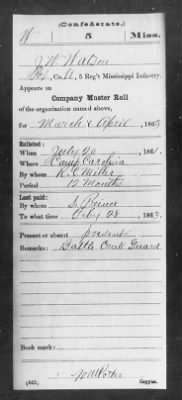 (Confederate.)
W 5 Miss.
J W Watson
Co. H, 5 Reg't Mississippi Infantry.
Appears on
Company Muster Roll
of the organization named above,
for March & April, 1863
Enlisted:
When July 20, 1861.
Where Camp Carolina
By whom R. C. Miller
Period 12 Months
Last paid:
By whom S. Prince
To what time Feby 28, 1863.
Present or absent present
Remarks: Battle Creek Guard
Book mark:
(642) Copyist.